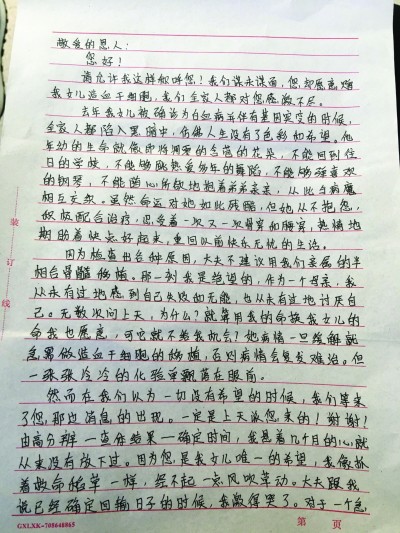 敬爱的恩人：
您好！
请允许我这样称呼您！我们素未谋面，您却愿意赠
我女儿造血干细胞，我们全家人都对您感激不尽。
去年我女儿被确诊为白血病并伴有基因突变的时候，
全家人都陷入黑暗中，仿佛人生没有了色彩和希望。她
年幼的生命就像即将凋萎的含苞的花朵，不能回到往
日的学校，不能够跳热爱多年的舞蹈，不能够弹喜欢
的钢琴，不能随心所欲地抱着弟弟亲亲，从此与病魔
相互交叉。虽然命运对她如此残酷，但她从不抱怨，
积极配合治疗，忍受着一次又一次骨穿和腰穿，热情地
期盼着快点好起来，重回以前快乐无忧的生活。
因为检查出各种原因，大夫不建议用我们亲属的半
相合骨髓移植。那一刻我是绝望的，作为一个母亲，我
从未有过地感到自己失败和无能，也从未有过地讨厌自
己。无数次问上天，为什么？就算用我的命换我女儿的
命我也愿意，可它就不给我机会？她病情一旦缓解就
急需做造血干细胞的移植，否则病情会复发难治。但
一张张冷冷的化验单飘落在眼前。
然而在我们认为一切没有希望的时候，我们等来
了您，那边消息的出现。一定是上天派您来的！谢谢！
由高分辨－查体结果－确定时间，我悬着几个月的心就
从来没有放下过。因为您是我女儿唯一的希望，我像抓
着救命稻草一样，经不起一点风吹草动。大夫跟我
说已经确定回输日子的时候，我激动得哭了。对于一个急
装
订
线
GXLXK-708648865
第 页